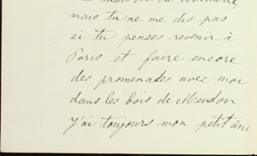 mais tu ne me dis pas
si tu penses revenir à
Paris et faire encore
des promenades avec moi
dans les bois de Meudon
j'ai toujours mon petit âne